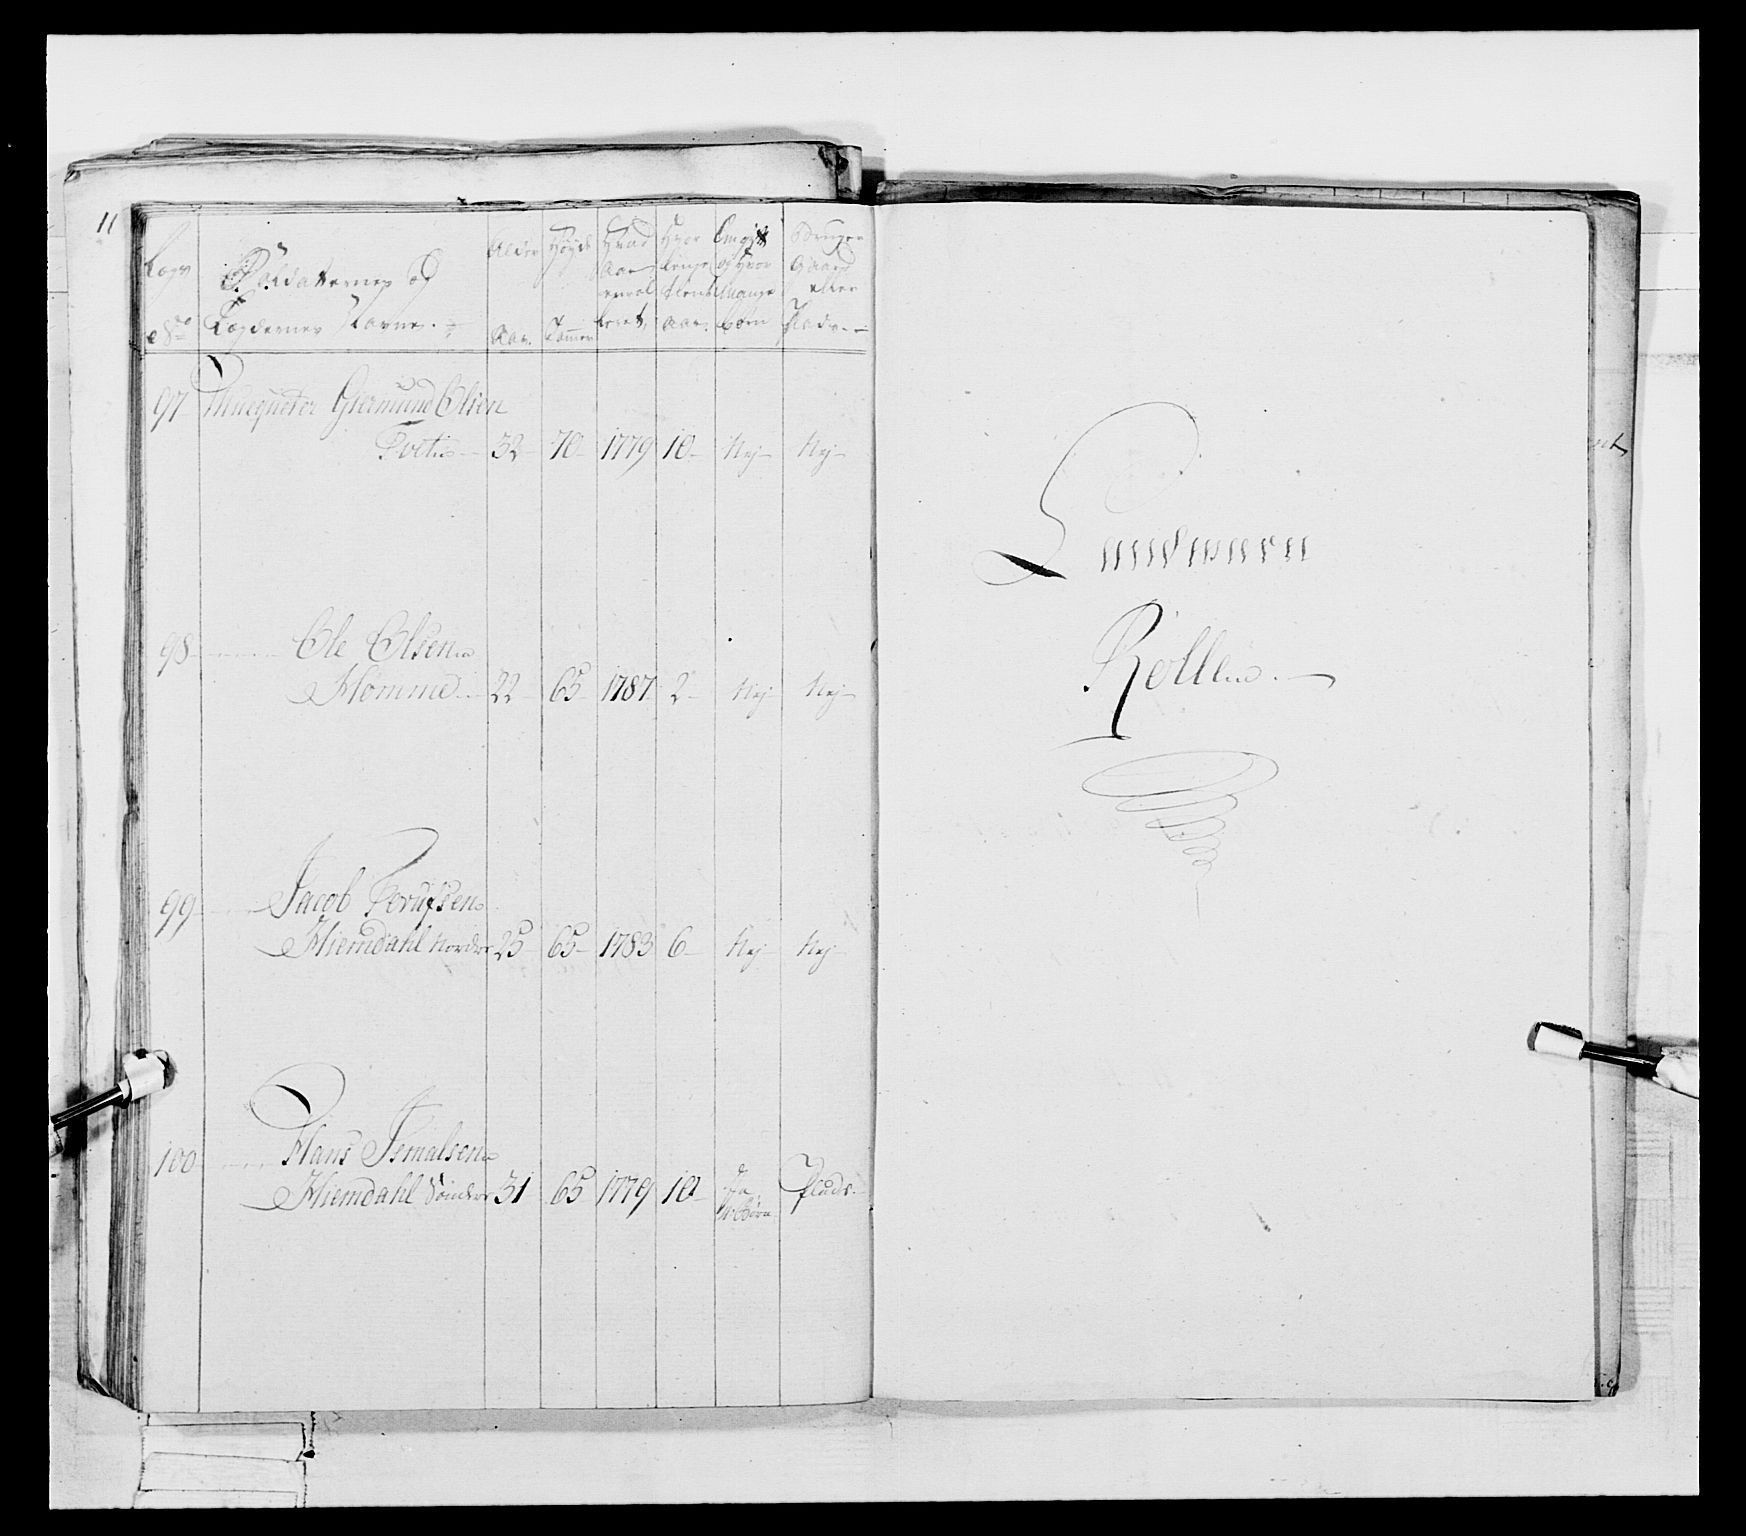 11
Lægs
No
Soldatternes og
Lægdernes Navne.
Alder
Aar.
Høyde
Tommer
Hvad
Aar
enrol
leret,
Hvor
længe
tient
Aar.
Omgift
og Hvor
Mange
børn
Bruger
Gaard
eller
Plads.
97 Musqueter Giermund Olsen
Tvet 32 70 1779 10 Nej Nej
98 Ole Olsen
Homme 22 65 1787 2 Nej Nej
99 Jacob Torufsen
Hiemdahl Nordre 25 65 1783 6 Nej Nej
100 Hans Ismalsen
Hiemdahl Søndre 31 65 1779 10 Ja Plads.
Børn
Landværn
Rolle.